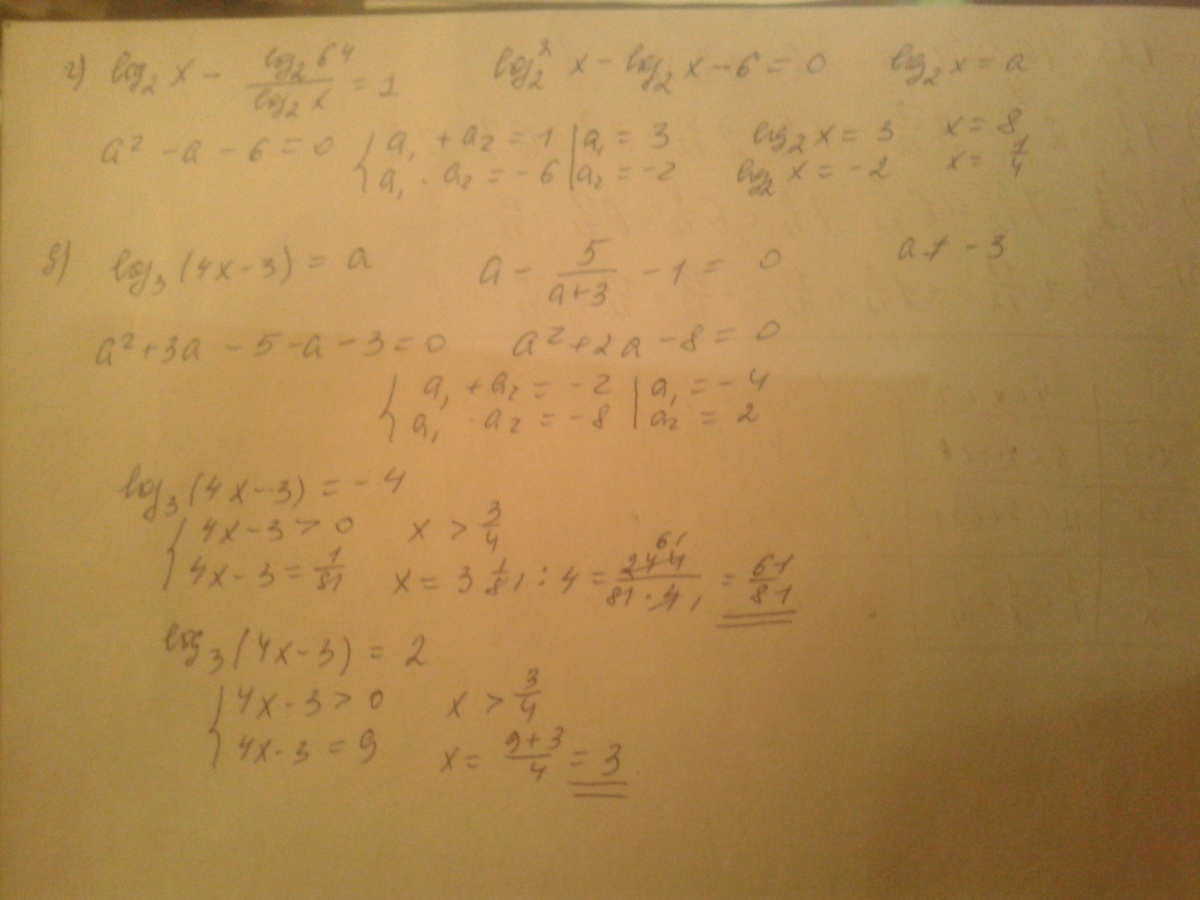 г) log₂ x - log₂64/log₂ x = 1 log₂² x - log₂ x - 6 = 0 log₂ x = a
a² - a - 6 = 0 { a₁ + a₂ = 1 | a₁ = 3 log₂ x = 3 x = 8
a₁ · a₂ = -6 | a₂ = -2 log₂ x = -2 x = 1/4
log₃(4x-3) = a a - 5/(a+3) - 1 = 0 a ≠ -3
a² + 3a - 5 - a - 3 = 0 a² + 2a - 8 = 0
{ a₁ + a₂ = -2 | a₁ = -4
a₁ · a₂ = -8 | a₂ = 2
log₃(4x-3) = -4
{ 4x-3 > 0 x > 3/4
4x-3 = 1/81 x = 3 1/81 : 4 = 244 61/81·4 1 = 61/81
log₃(4x-3) = 2
{ 4x-3 > 0 x > 3/4
4x-3 = 9 x = (9+3)/4 = 3